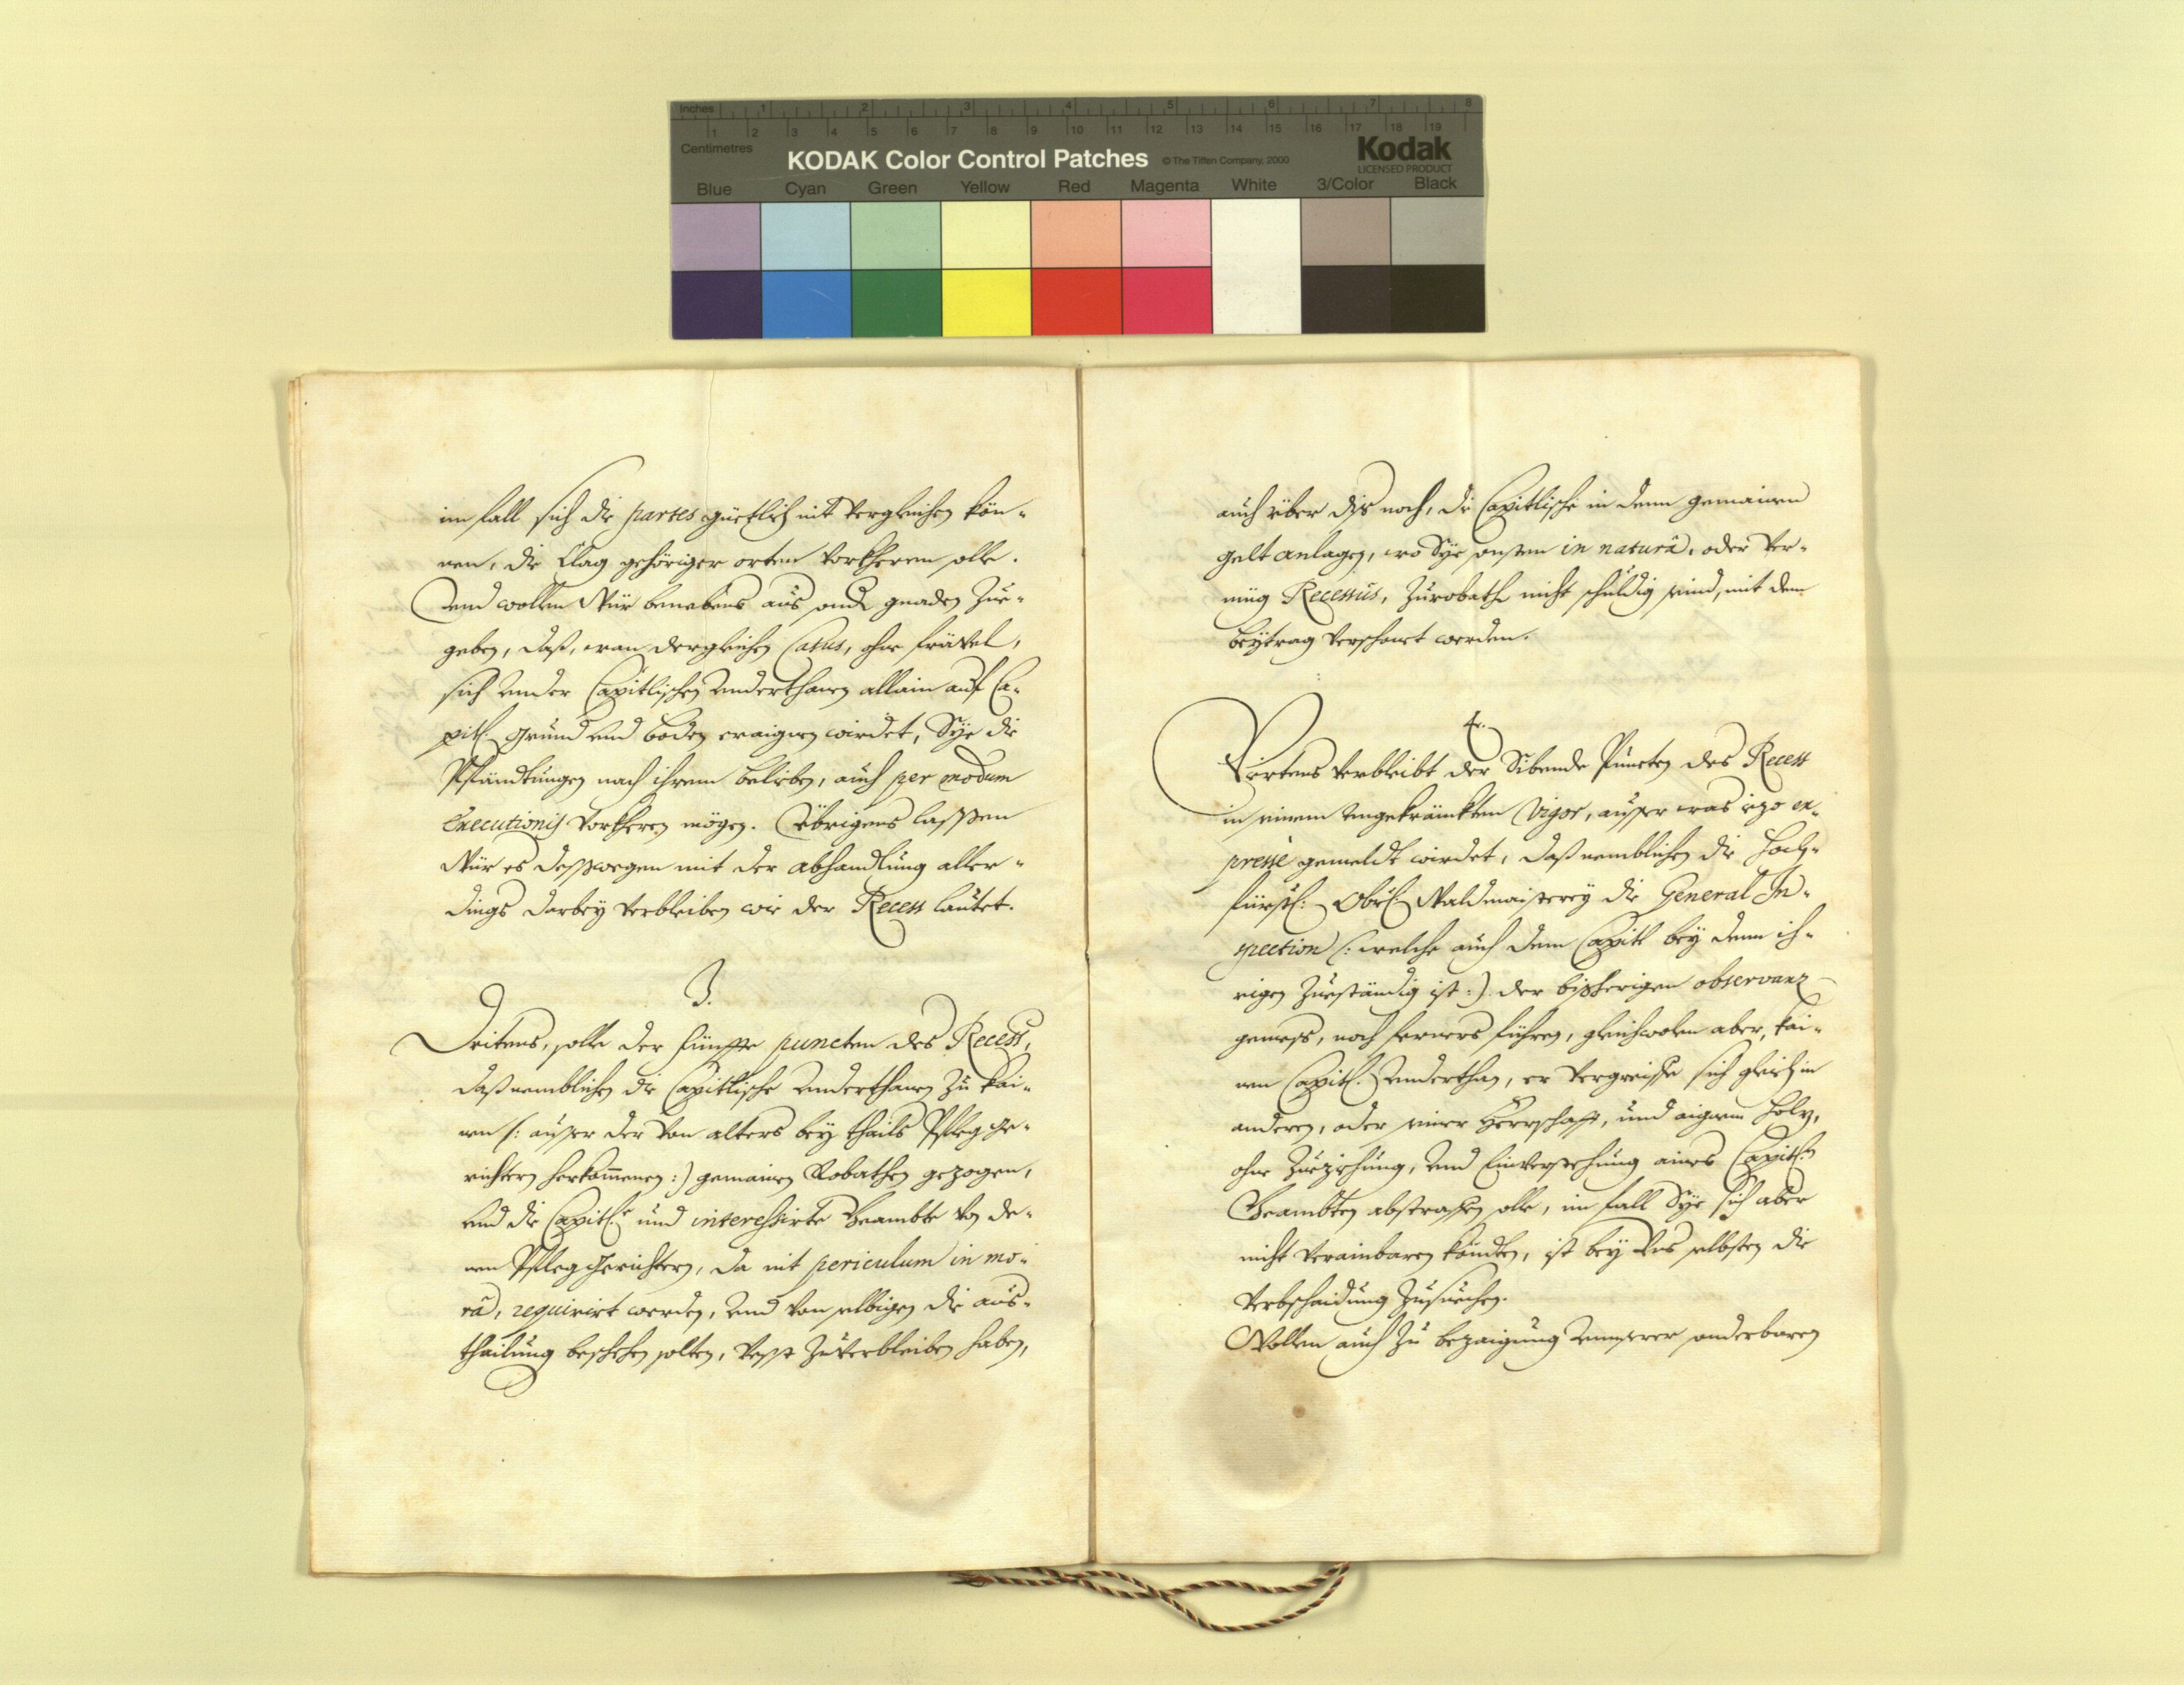 Inches 1 2 3 4 5 6 7 8
1 2 3 4 5 6 7 8 9 10 11 12 13 14 15 16 17 18 19
Centimetres
KODAK Color Control Patches © The Tiffen Company, 2000
Kodak
LICENSED PRODUCT
Blue Cyan Green Yellow Red Magenta White 3/Color Black
im fall sich die partes güettlich nit vergleichen kön-
nen, die Clag gehöriger orten vorkheren solle.
Vnd wollen Wür benebens aus sond. gnaden Zue-
geben, daß, wan dergleichen Casus, ohne frävel,
sich vnder Capitlischen vnderthanen allain auf Ca-
pitl. Grund vnd boden eraignen wirdet, Sÿe die
Pfändtungen nach ihrem belieben, auch per modum
Executionis vorkheren mögen. Übrigens lassen
Wür es desswegen mit der abhandlung aller-
dings darbeÿ verbleiben wie der Recess lautet.
3.
Dritens, solle der fünffte puncten des Recess,
daß nemblichen die Capitlische vnderthanen zu kai-
nen (: ausser der von alters beÿ thails Pfleg ge-
richten herkommenen :) gemainen Robathen gezogen,
vnd die Capitl.e und interessirte Beambte von de-
nen Pfleggerichtern, da nit periculum in mo-
râ, requirirt werden, vnd von selbigen die aus-
thailung beschehen solten, vesst zuverbleiben haben,
auch über diß noch, die Capitlische in denn gemainen
gelt anlagen, wo Sÿe sonsten in naturâ, oder ver-
müg Recessus, zurobathe nicht schuldig seind, mit dem
beÿtrag verschont werden.
4.
Viertens verbleibt der Sibende Puncten des Recess
in seinem vngekränkten Vigor, ausser was iezo ex-
presse gemeldt wirdet, daß nemblichen die Hoch-
fürstl: Obr. Waldmaisterej die General In-
spection (: welche auch dem Capitl beÿ denn ih-
rigen zueständig ist :) der bißherigen observanz
gemess, noch ferners führen, gleichwolen aber, kai-
nen Capitl. vnderthan, er vergreiffe sich gleich in
anderen, oder seiner Herrschafft, und aignem holz,
ohne Zueziehung, vnd Einverstehung aines Capitl.n
Beambten abstraffen solle, im fall Sÿe sich aber
nicht verainbaren kündten, ist beÿ Vns selbsten die
verbschaidung zusuechen.
Wollen auch zu bezaigung vnnserer sonderbaren